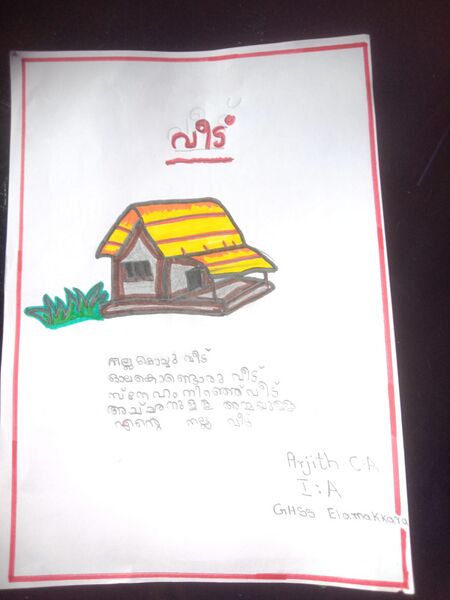 വീട്
നല്ല കൊച്ചു വീട്
ഓലകൊണ്ടൊരു വീട്
സ്നേഹംനിറഞ്ഞ് വീട്
അച്ഛനുള്ള അമ്മയുള്ള
എന്റെ നല്ല വീട്
Arjith C.A
I:A
GHSS Elamakkara